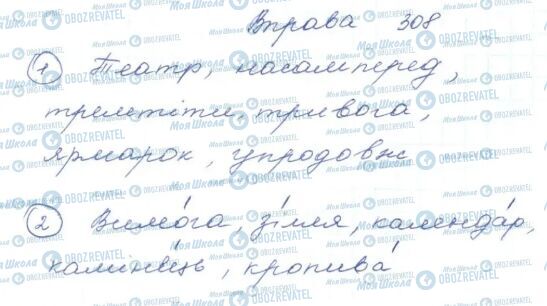 Вправа 308
1 Театр, насамперед,
тремтіти, тривога,
ярмарок, упродовж
2 Вимо́га, зі́лля, календа́р,
камінець, кропива́
Моя Школа OBOZREVATEL